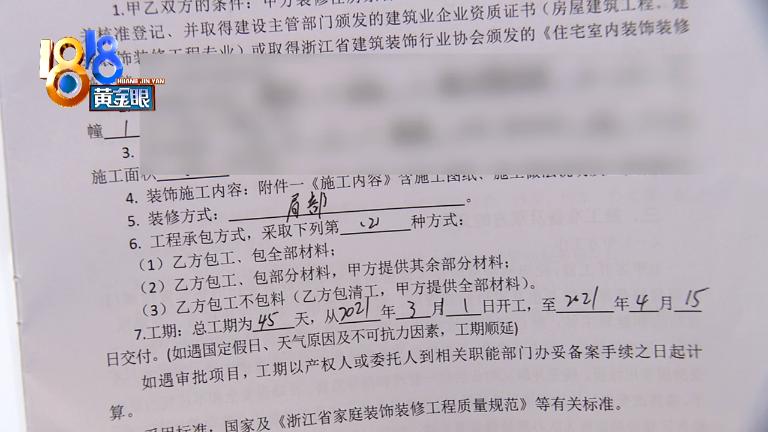 1.甲乙双方的条件：甲方装修住房系
核准登记、并取得建设主管部门颁发的建筑业企业资质证书（房屋建筑工程、建
装饰装修工程专业）或取得浙江省建筑装饰行业协会颁发的《住宅室内装饰装修
1818
HUANG JIN YAN
黄金眼
幢 1
3.
施工面积
4. 装饰施工内容：附件一《施工内容》含施工图纸、施工做法
5. 装修方式： 局部 。
6. 工程承包方式，采取下列第 (2) 种方式：
（1）乙方包工、包全部材料；
（2）乙方包工、包部分材料，甲方提供其余部分材料；
（3）乙方包工不包料（乙方包清工，甲方提供全部材料）。
7.工期：总工期为 45 天，从 2021 年 3 月 1 日开工，至 2021 年 4 月 15
日交付。(如遇国定假日、天气原因及不可抗力因素，工期顺延)
如遇审批项目，工期以产权人或委托人到相关职能部门办妥备案手续之日起计
算。
采用标准，国家及《浙江省家庭装饰装修工程质量规范》等有关标准。